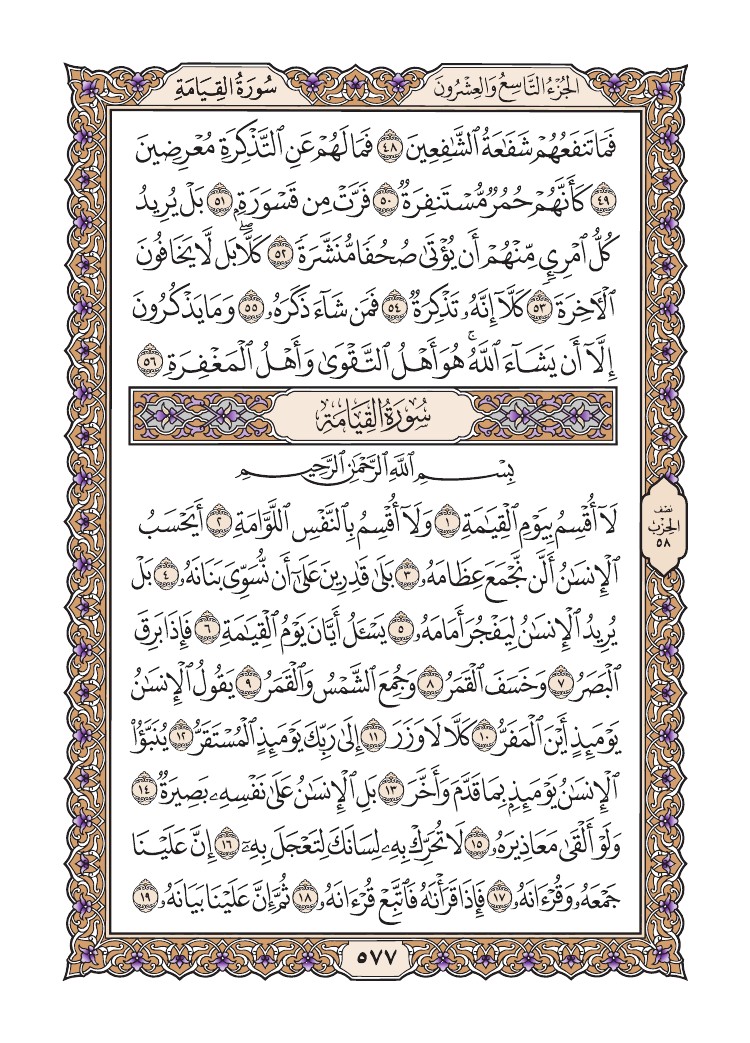 الجُزْءُ التَّاسِعُ وَالعِشْرُونَ سُورَةُ القِيَامَةِ
فَمَا تَنفَعُهُمْ شَفَٰعَةُ ٱلشَّٰفِعِينَ ٤٨ فَمَا لَهُمْ عَنِ ٱلتَّذْكِرَةِ مُعْرِضِينَ
٤٩ كَأَنَّهُمْ حُمُرٌ مُّسْتَنفِرَةٌ ٥٠ فَرَّتْ مِن قَسْوَرَةِۭ ٥١ بَلْ يُرِيدُ
كُلُّ ٱمْرِئٍ مِّنْهُمْ أَن يُؤْتَىٰ صُحُفًا مُّنَشَّرَةً ٥٢ كَلَّاۖ بَل لَّا يَخَافُونَ
ٱلْأٓخِرَةَ ٥٣ كَلَّآ إِنَّهُۥ تَذْكِرَةٌ ٥٤ فَمَن شَآءَ ذَكَرَهُۥ ٥٥ وَمَا يَذْكُرُونَ
إِلَّآ أَن يَشَآءَ ٱللَّهُۚ هُوَ أَهْلُ ٱلتَّقْوَىٰ وَأَهْلُ ٱلْمَغْفِرَةِ ٥٦
سُورَةُ القِيَامَةِ
بِسْمِ ٱللَّهِ ٱلرَّحْمَٰنِ ٱلرَّحِيمِ
لَآ أُقْسِمُ بِيَوْمِ ٱلْقِيَٰمَةِ ١ وَلَآ أُقْسِمُ بِٱلنَّفْسِ ٱللَّوَّامَةِ ٢ أَيَحْسَبُ
ٱلْإِنسَٰنُ أَلَّن نَّجْمَعَ عِظَامَهُۥ ٣ بَلَىٰ قَٰدِرِينَ عَلَىٰٓ أَن نُّسَوِّىَ بَنَانَهُۥ ٤ بَلْ
يُرِيدُ ٱلْإِنسَٰنُ لِيَفْجُرَ أَمَامَهُۥ ٥ يَسْـَٔلُ أَيَّانَ يَوْمُ ٱلْقِيَٰمَةِ ٦ فَإِذَا بَرِقَ
ٱلْبَصَرُ ٧ وَخَسَفَ ٱلْقَمَرُ ٨ وَجُمِعَ ٱلشَّمْسُ وَٱلْقَمَرُ ٩ يَقُولُ ٱلْإِنسَٰنُ
يَوْمَئِذٍ أَيْنَ ٱلْمَفَرُّ ١٠ كَلَّا لَا وَزَرَ ١١ إِلَىٰ رَبِّكَ يَوْمَئِذٍ ٱلْمُسْتَقَرُّ ١٢ يُنَبَّؤُا۟
ٱلْإِنسَٰنُ يَوْمَئِذِۭ بِمَا قَدَّمَ وَأَخَّرَ ١٣ بَلِ ٱلْإِنسَٰنُ عَلَىٰ نَفْسِهِۦ بَصِيرَةٌ ١٤
وَلَوْ أَلْقَىٰ مَعَاذِيرَهُۥ ١٥ لَا تُحَرِّكْ بِهِۦ لِسَانَكَ لِتَعْجَلَ بِهِۦٓ ١٦ إِنَّ عَلَيْنَا
جَمْعَهُۥ وَقُرْءَانَهُۥ ١٧ فَإِذَا قَرَأْنَٰهُ فَٱتَّبِعْ قُرْءَانَهُۥ ١٨ ثُمَّ إِنَّ عَلَيْنَا بَيَانَهُۥ ١٩
نصف
الحزب
٥٨
٥٧٧